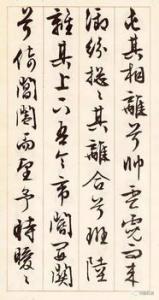 屯其相離兮帥雲霓而來
御紛總〻其離合兮班陸
離其上下吾令帝閽開關
兮倚閶闔而望予時曖〻